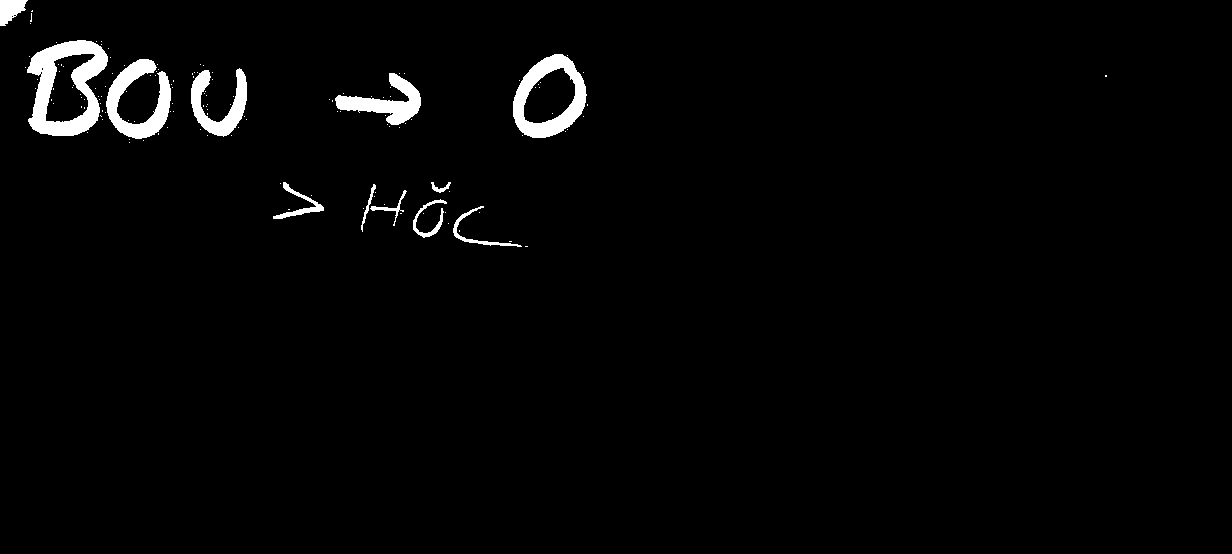 BOU → O
> HŏC